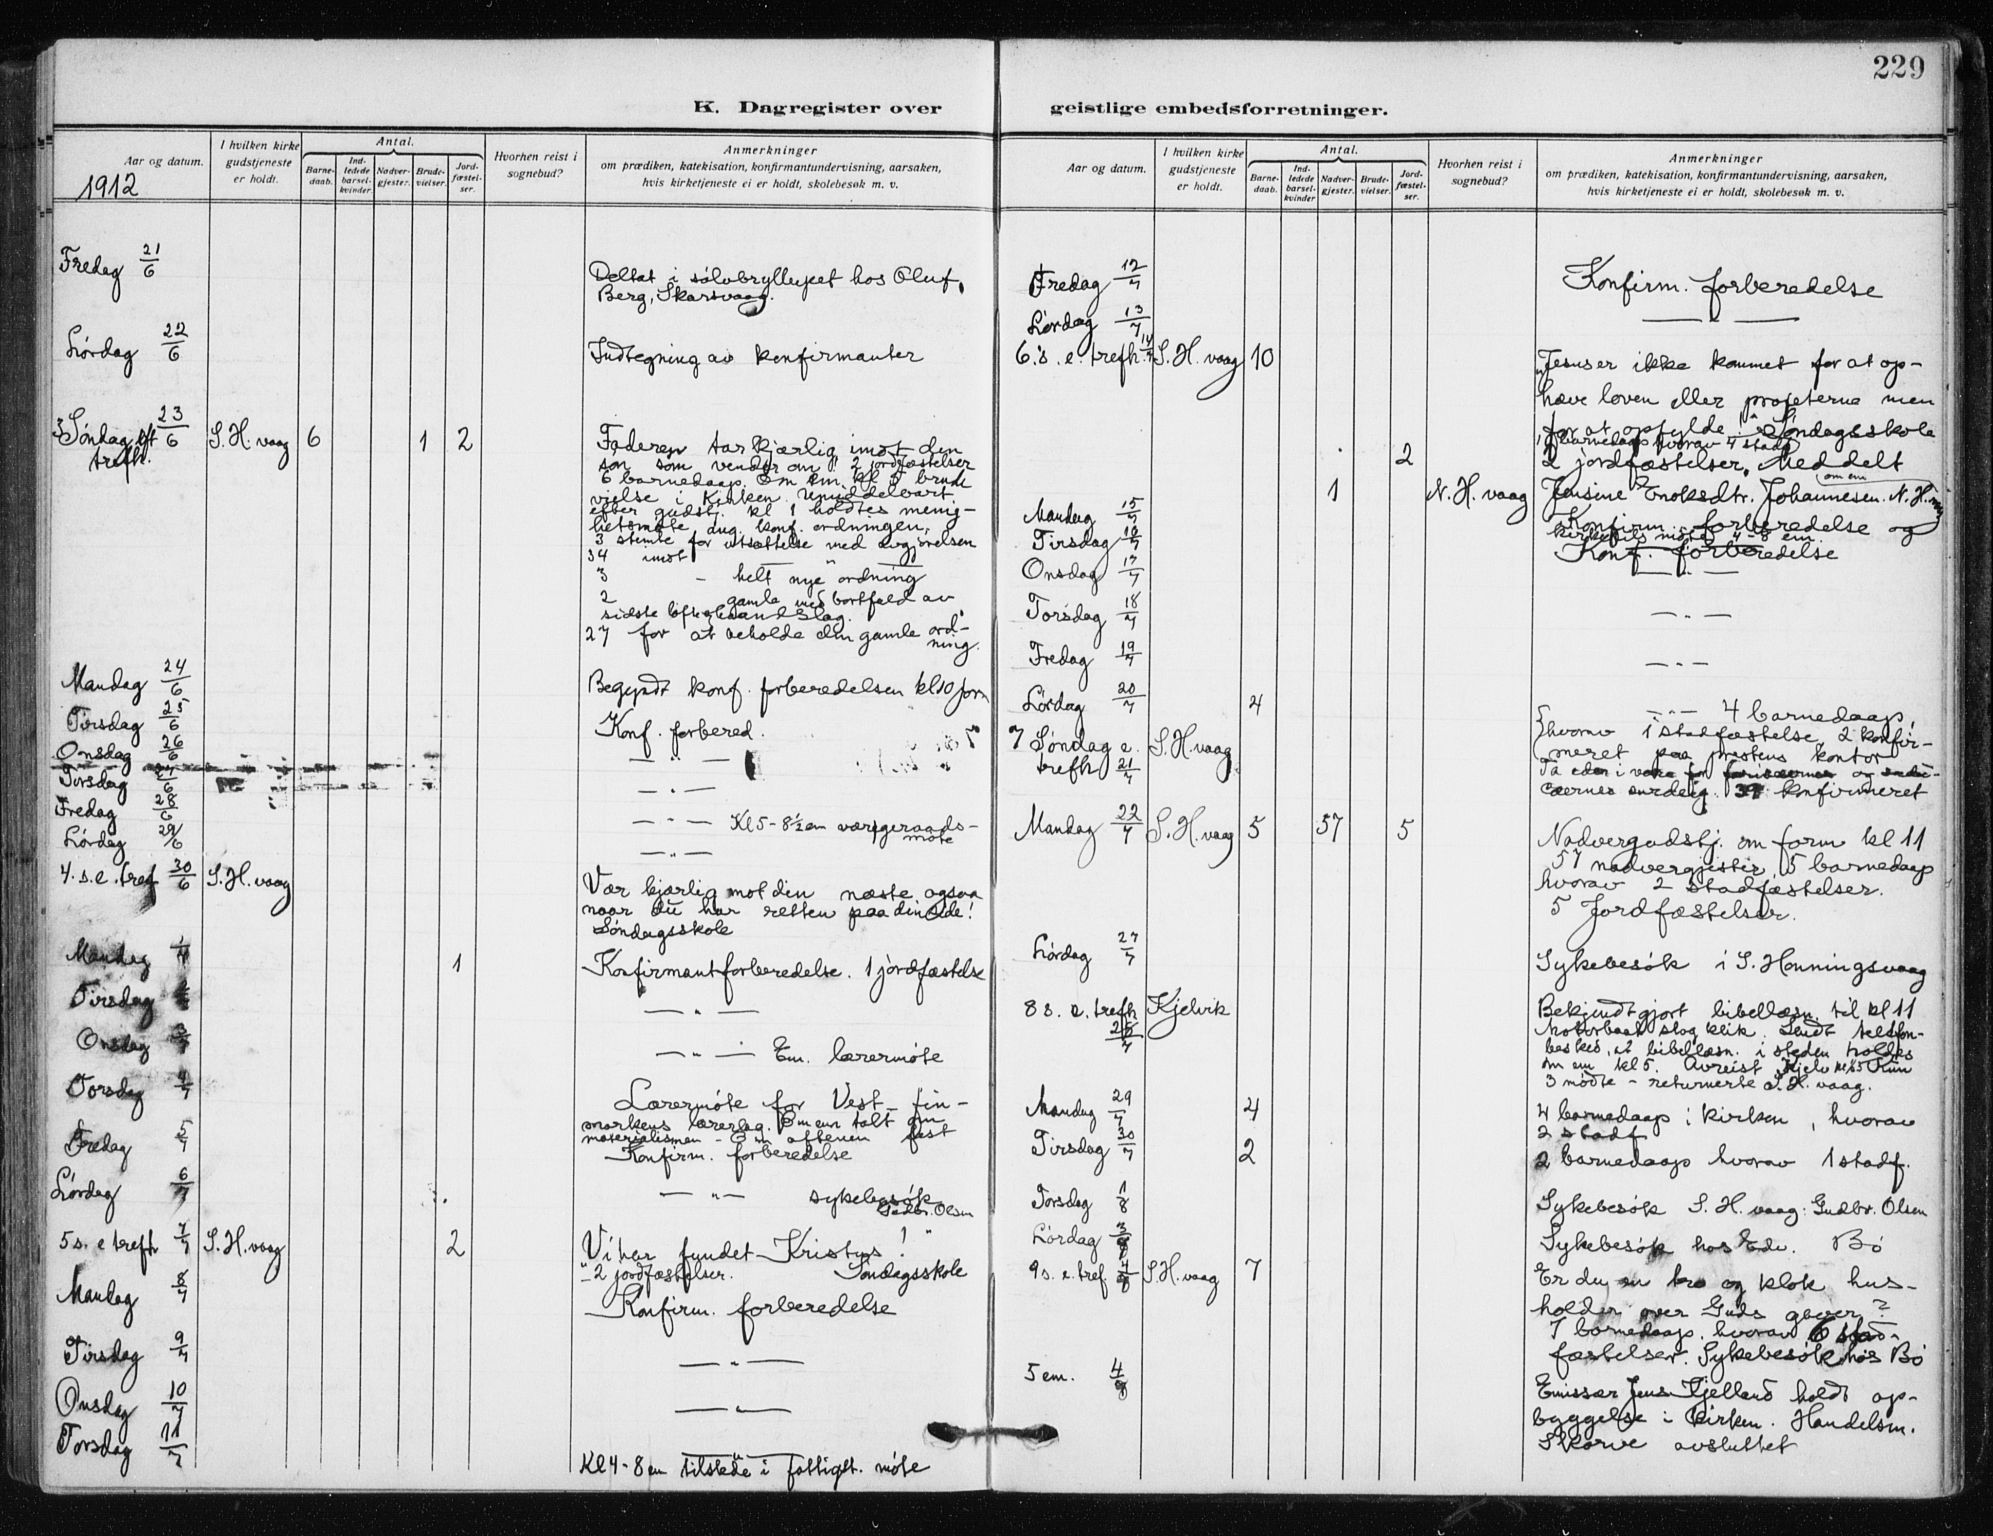 229
K. Dagregister over
geistlige embedsforretninger.
Aar og datum.
1912
I hvilken kirke gudstjeneste er holdt.
Antal.
Barne-daab.
Ind-ledede barsel-kvinder.
Nadver-gjester.
Brude-vielser.
Jord-fæstel-ser.
Hvorhen reist i sognebud?
Anmerkninger
om prædiken, katekisation, konfirmantundervisning, aarsaken,
hvis kirketjeneste ei er holdt, skolebesøk m. v.
Fredag 21/6 Deltat i sølvbryllupet hos Oluf
Berg, Skarsvaag.
Lørdag 22/6 Indtegning av konfirmanter
3 Søndag eft 23/6 S. H. vaag 6 1 2 Faderen tar kjærlig imot den
trefh. søn som vender om! 2 jordfæstelser
6 barnedaap. Em em. kl 5 brude
vielse i Kirken. Umiddelbart
efter gudstj. kl 1 holdtes menig-
hetsmøte ang. konf. ordningen,
3 stemte for utsættelse med avgjørelsen
34 imot "
3 - helt nye ordning
2 gamle med bortfald av
sidste løfte haandslag.
27 for at beholde den gamle ord-
ning.
Mandag 24/6 Begyndt konf. forberedelsen kl 10 form
Tirsdag 25/6 Konf. forbered.
Onsdag 26/6 — " —
Torsdag 27/6 — " —
Fredag 28/6 — " — Kl 5 - 8½ em værgeraads-
møte
Lørdag 29/6 — " —
4. s. e. tref 30/6 S. H. vaag Vær kjærlig mot din næste ogsaa
naar du har retten paa din side!
Søndagsskole
Mandag 1/7 1 Konfirmantforberedelse. 1 jordfæstelse
Tirsdag 2/7 — " —
Onsdag 3/7 — " — Em. lærermøte
Torsdag 4/7 Lærermøte for Vest-fin-
markens lærerlag. Em em talt om
materialismen - Em aftenen fest
Fredag 5/7 Konfirm. forberedelse
Lørdag 6/7 — " — sykebesøk
Gudbr. Olsen
5 s. e trefh 7/7 S. H. vaag 2 Vi har fundet Kristus!"
2 jordfæstelser. Søndagsskole
Mandag 8/7 Konfirm. forberedelse
Tirsdag 9/7 — " —
Onsdag 10/7 — " —
Torsdag 11/7 Kl 4 - 8 em tilstede i fattigst. møte
Aar og datum.
I hvilken kirke gudstjeneste er holdt.
Antal.
Barne-daab.
Ind-ledede barsel-kvinder
Nadver-gjester.
Brude-vielser.
Jord-fæstel-ser.
Hvorhen reist i sognebud?
Anmerkninger
om prædiken, katekisation, konfirmantundervisning, aarsaken,
hvis kirketjeneste ei er holdt, skolebesøk m. v.
Fredag 12/7 Konfirm. forberedelse
Lørdag 13/7 — " —
6. s. e. trefh. 14/7 S. H. vaag 10 Jesus er ikke kommet for at op-
hæve loven eller profeterne men
for at opfylde" Søndagsskole
10 barnedaap hvorav 4 stadf.
2 2 jordfæstelser. Meddelt
om em
1 N. H. vaag Jensine Enoksdtr. Johannesen. N. H.
Mandag 15/7 Konfirm. forberedelse og
kirketils møte 4-8 em.
Tirsdag 16/7 Konf. forberedelse
Onsdag 17/7 — " —
Torsdag 18/7 — " —
Fredag 19/7 — " —
Lørdag 20/7 4 — " — 4 barnedaap,
hvorav 1 stadfæstelse, 2 konfir-
meret paa prestens kontor
7 Søndag e. S. H. vaag
trefh 21/7 Ta eder i vare for farisæernes og saddu-
cæernes surdeig. 39 konfirmeret
Mandag 22/7 S. H. vaag 5 57 5 Nadvergudstj. om form kl 11
57 nadvergjester, 5 barnedaap
hvorav 2 stadfæstelser.
5 Jordfæstelser.
Lørdag 27/7 Sykebesøk i S. Honningsvaag
8 s. e. trefh Kjelvik Bekjendtgjort bibellæsn. til kl 11
28/7 Motorbaat slog klik. Sendt telefon-
besked, at bibellæsn. i steden holdes
om em kl 5. Avreist Kjelv kl 5 Kun
3 mødte - returnerte S. H. vaag.
Mandag 29/7 4 4 barnedaap i kirken, hvorav
2 stadf
Tirsdag 30/7 2 2 barnedaap hvorav 1 stadf.
Torsdag 1/8 Sykebesøk S. H. vaag: Gudbr. Olsen
Lørdag 3/8 Sykebesøk hos Edv. Bø
9 s. e. tref. 4/8 S. H. vaag 7 Er du en tro og klok hus-
holder over Guds gaver?
7 barnedaap. hvorav 6 stad-
fæstelser. Sykebesøk hos Bø
5 em. 4/8 Emissær Jens Kjelland holdt op-
byggelse i kirken. Handelsm.
Skorve avsluttet